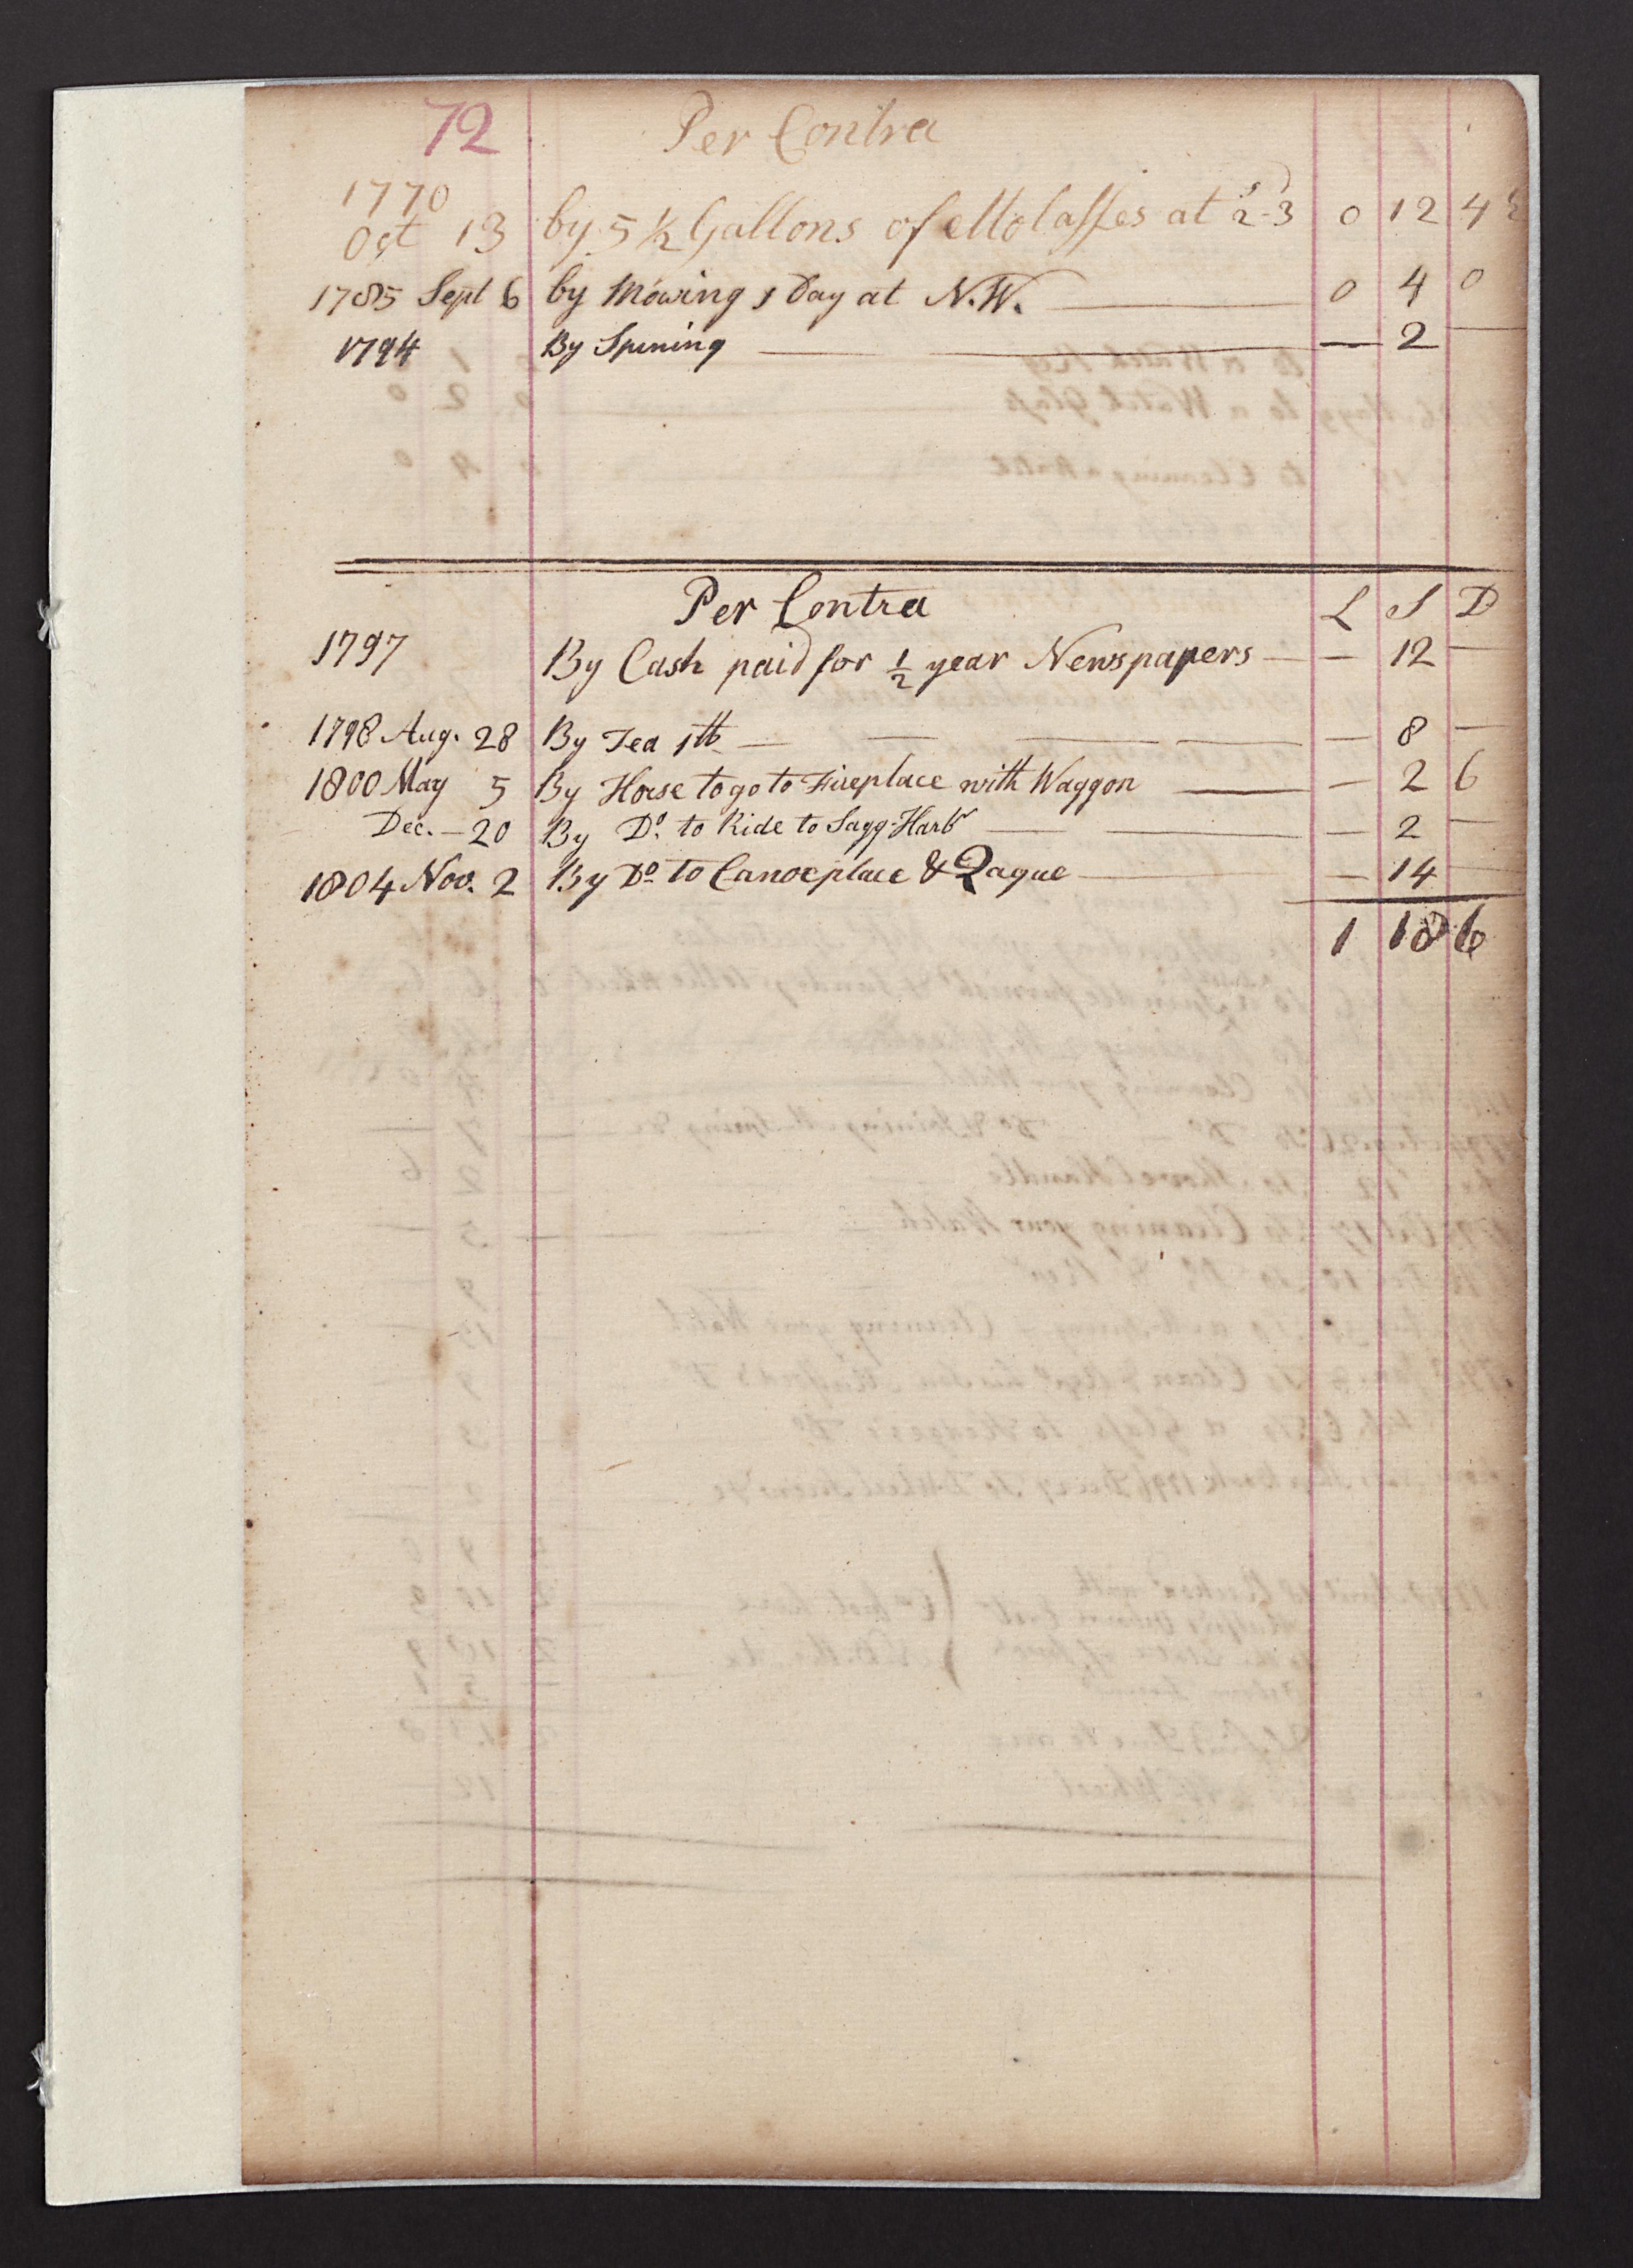 72 Per Contra
1770
Oct 13 by 5 ½ Gallons of Molasses at 2-3 0 12 4½
1785 Sept 6 by Mowing 1 Day at N.W. 0 4 0
1794 By Spining — 2 —
Per Contra L S D
1797 By Cash paid for ½ year Newspapers — 12 —
1798 Aug. 28 By Tea 1 lb — 8 —
1800 May 5 By Horse to go to Fireplace with Waggon — 2 6
Dec. — 20 By Do. to Ride to Sagg-Harbr — 2 —
1804 Nov. 2 By Do. to Canoeplace & Quague — 14 —
1 18 6